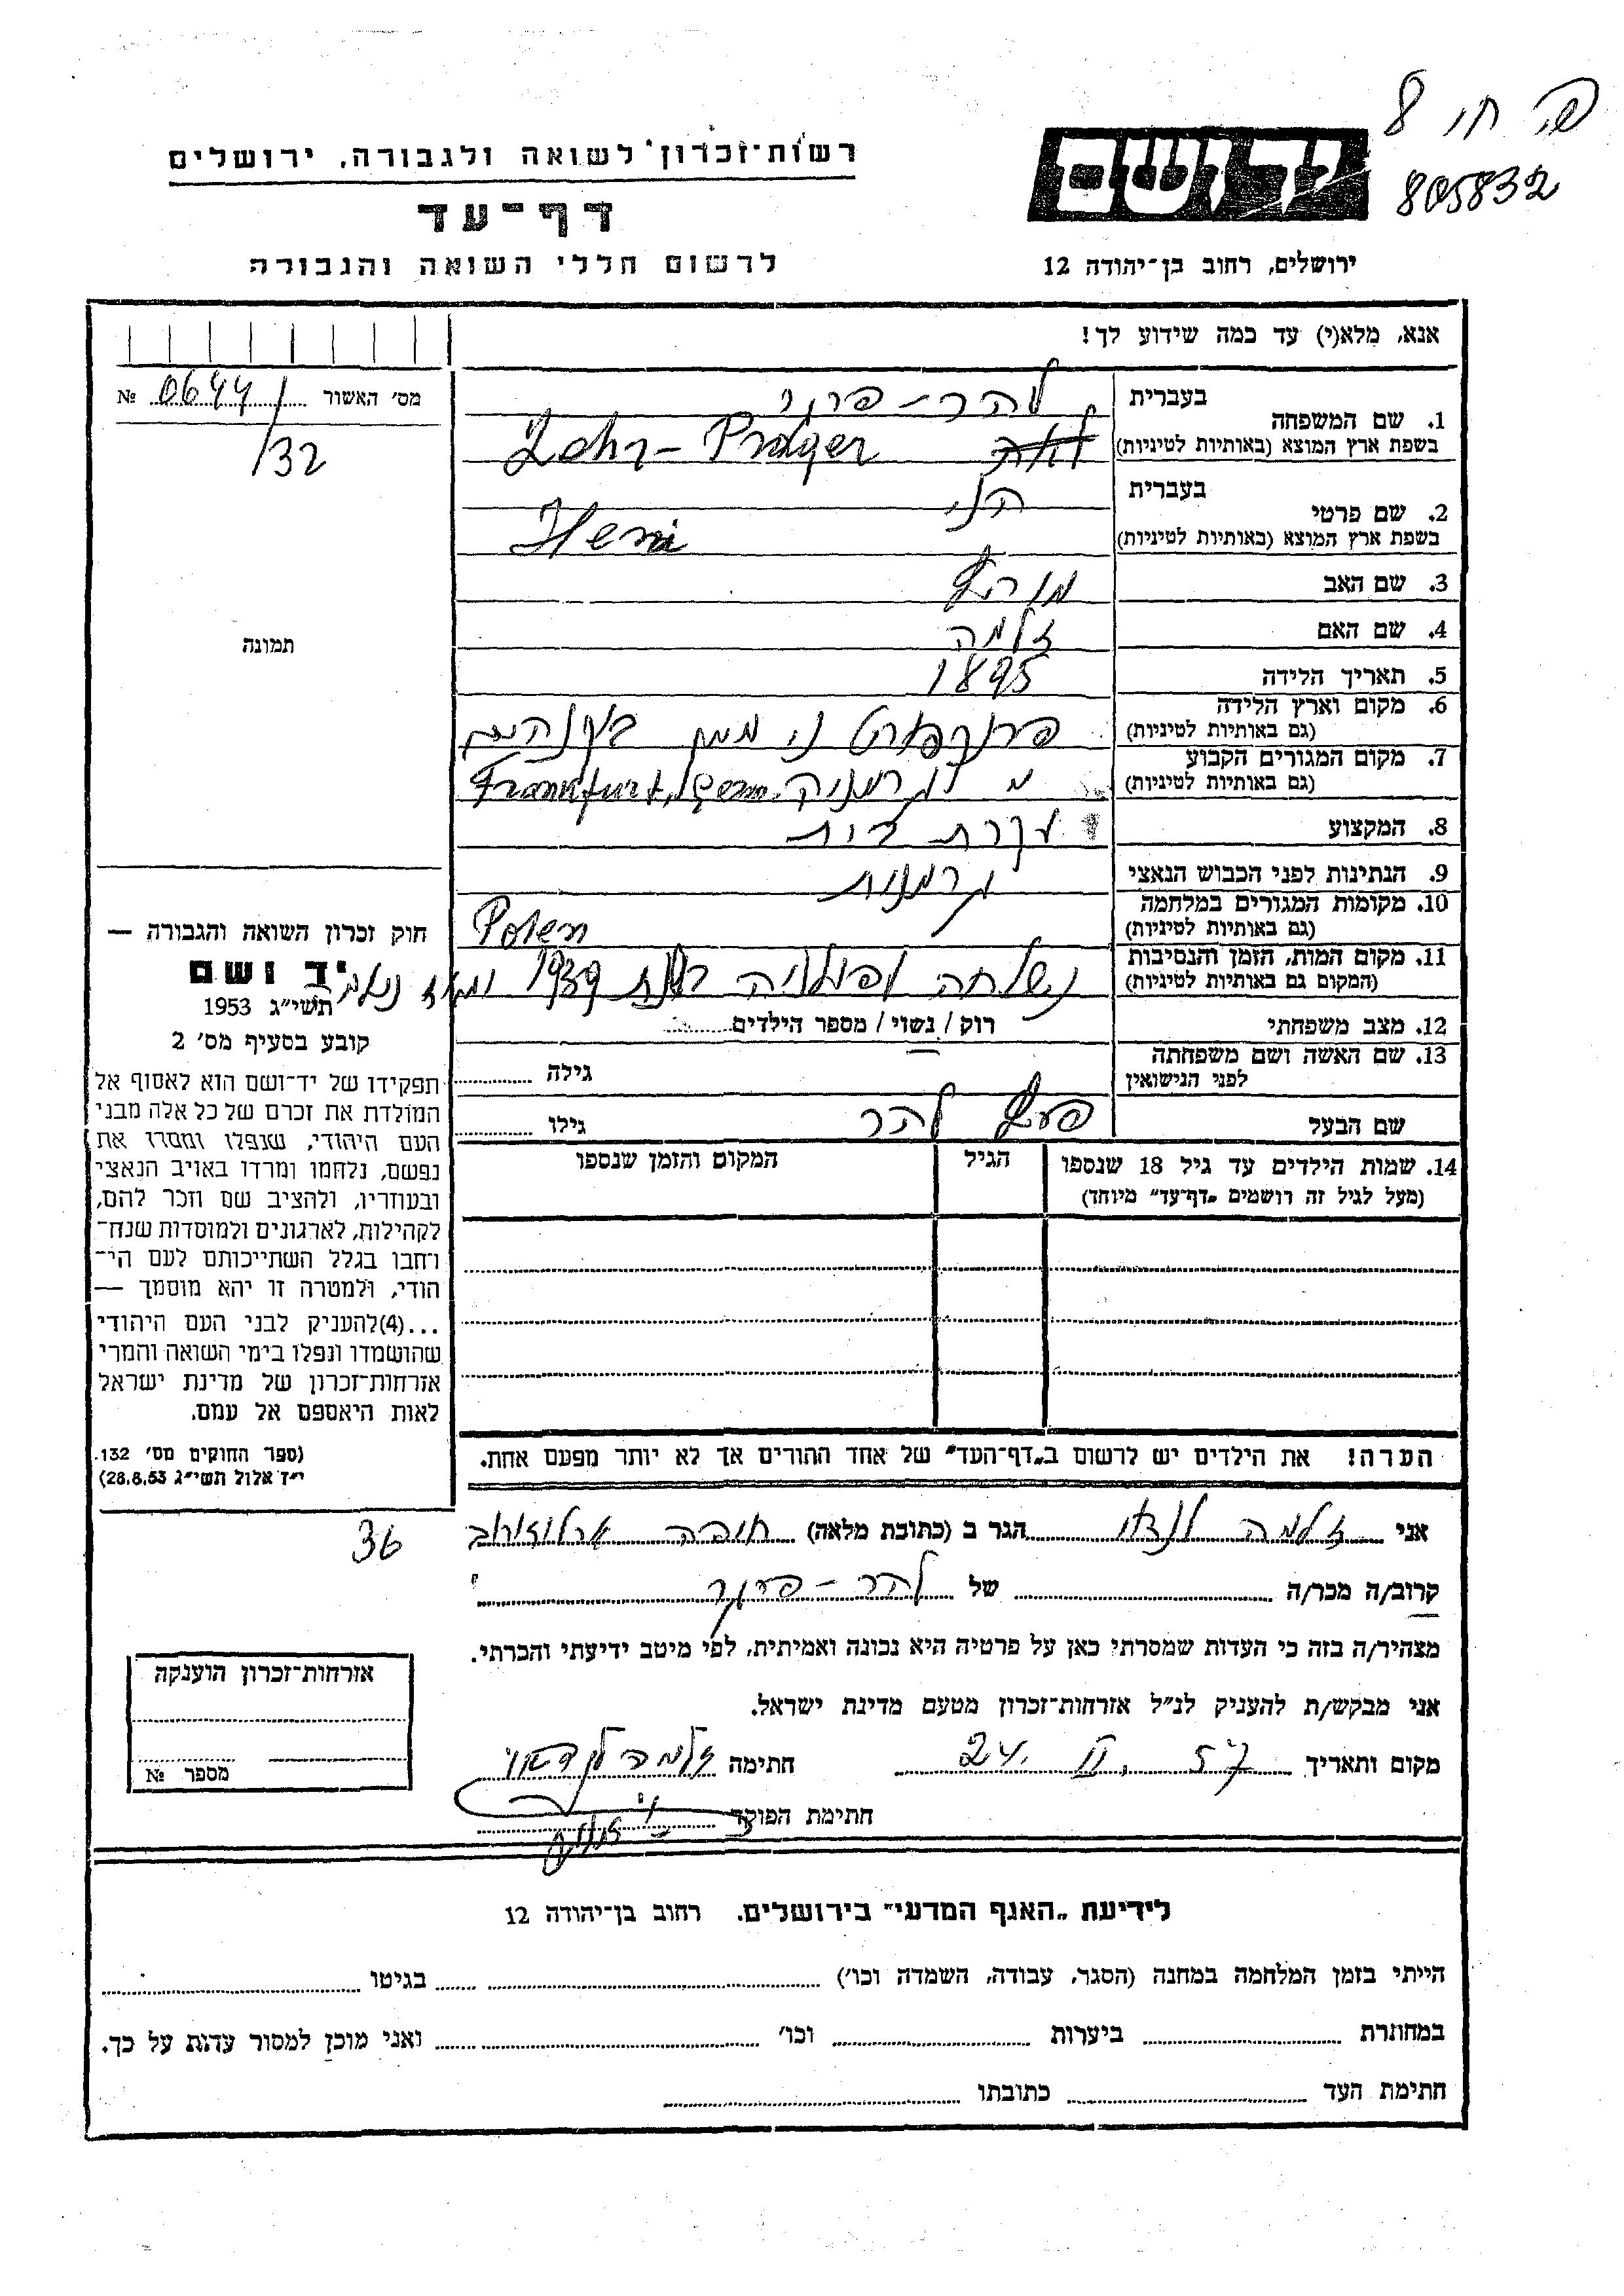 פ. חי 8
805832
יד ושם
ירושלים, רחוב בן־יהודה 12
רשות־זכרון לשואה ולגבורה, ירושלים
דף־עד
לרשום חללי השואה והגבורה
אנא, מלא(י) עד כמה שידוע לך!
מס׳ האשור 0644/ №
/32
תמונה
בעברית להר-פרגר
1. שם המשפחה
בשפת ארץ המוצא (באותיות לטיניות) Lehr-Präger
בעברית הני
2. שם פרטי
בשפת ארץ המוצא (באותיות לטיניות) Heni
3. שם האב מוריץ
4. שם האם זלמה
5. תאריך הלידה 1895
6. מקום וארץ הלידה פרנקפורט ני מיין
(גם באותיות לטיניות)
7. מקום המגורים הקבוע גרמניה Frankfurt, Germ.
(גם באותיות לטיניות)
8. המקצוע עקרת בית
9. הנתינות לפני הכבוש הנאצי גרמנית
10. מקומות המגורים במלחמה Polen
(גם באותיות לטיניות)
11. מקום המות, הזמן והנסיבות נשלחה לפולניה בשנת 1939 ומאז נעלמה
(המקום גם באותיות לטיניות)
12. מצב משפחתי רוק / נשוי / מספר הילדים
13. שם האשה ושם משפחתה
לפני הנישואין גילה
שם הבעל להר גילו
14. שמות הילדים עד גיל 18 שנספו הגיל המקום והזמן שנספו
(מעל לגיל זה רושמים „דף־עד״ מיוחד)
הערה! את הילדים יש לרשום ב„דף־העד״ של אחד ההורים אך לא יותר מפעם אחת.
חוק זכרון השואה והגבורה —
יד ושם
תשי״ג 1953
קובע בסעיף מס׳ 2
תפקידו של יד־ושם הוא לאסוף אל
המולדת את זכרם של כל אלה מבני
העם היהודי, שנפלו ומסרו את
נפשם, נלחמו ומרדו באויב הנאצי
ובעוזריו, ולהציב שם וזכר להם,
לקהילות, לארגונים ולמוסדות שנח־
רבו בגלל השתייכותם לעם הי־
הודי, ולמטרה זו יהא מוסמך —
...(4)להעניק לבני העם היהודי
שהושמדו ונפלו בימי השואה והמרי
אזרחות־זכרון של מדינת ישראל
לאות היאספם אל עמם.
(ספר החוקים מס׳ 132.
י״ד אלול תשי״ג 28.8.53)
אני זלמה לנדאו הגר ב (כתובת מלאה) חיפה ארלוזורוב 36
קרוב/ה מכר/ה של להר-פרגר
מצהיר/ה בזה כי העדות שמסרתי כאן על פרטיה היא נכונה ואמיתית, לפי מיטב ידיעתי והכרתי.
אני מבקש/ת להעניק לנ״ל אזרחות־זכרון מטעם מדינת ישראל.
מקום ותאריך 24. II. 57 חתימה זלמה לנדאו
חתימת הפוקד
אזרחות־זכרון הוענקה
מספר №
לידיעת „האגף המדעי״ בירושלים. רחוב בן־יהודה 12
הייתי בזמן המלחמה במחנה (הסגר, עבודה, השמדה וכו׳) בגיטו
במחתרת ביערות וכו׳ ואני מוכן למסור עדות על כך.
חתימת העד כתובתו